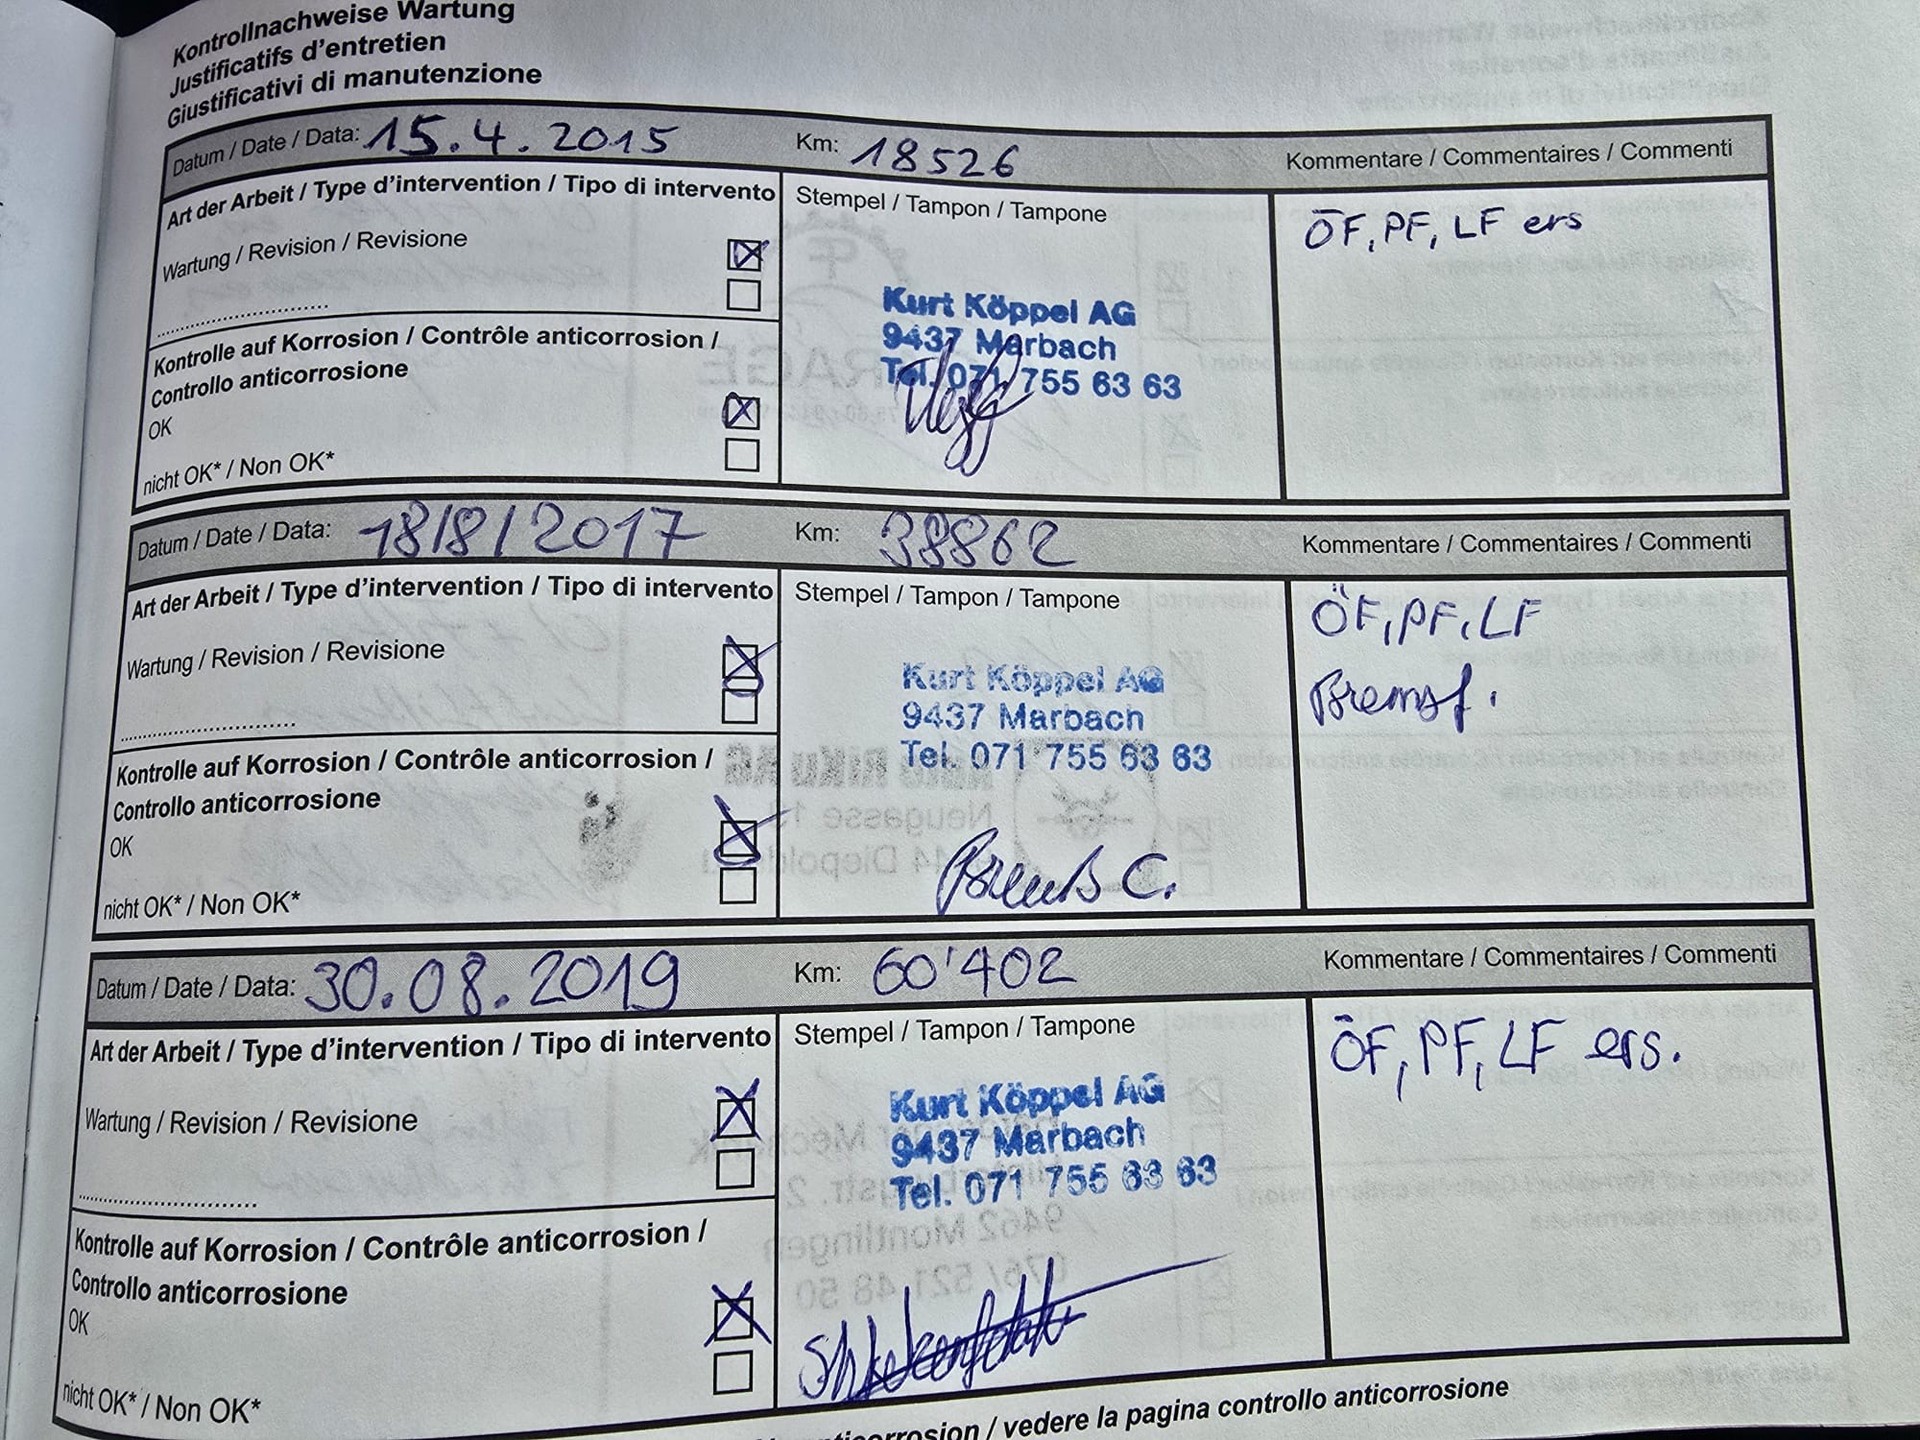 Kontrollnachweise Wartung
Justificatifs d'entretien
Giustificativi di manutenzione
Datum / Date / Data: 15.4.2015 Km: 18526 Kommentare / Commentaires / Commenti
Art der Arbeit / Type d'intervention / Tipo di intervento
Stempel / Tampon / Tampone
ÖF, PF, LF ers
Wartung / Revision / Revisione
Kurt Köppel AG
9437 Marbach
Tel. 071 755 63 63
Kontrolle auf Korrosion / Contrôle anticorrosion /
Controllo anticorrosione
OK
nicht OK* / Non OK*
Datum / Date / Data: 18/8/2017 Km: 38862 Kommentare / Commentaires / Commenti
Art der Arbeit / Type d'intervention / Tipo di intervento
Stempel / Tampon / Tampone
ÖF, PF, LF
Bremsf.
Wartung / Revision / Revisione
Kurt Köppel AG
9437 Marbach
Tel. 071 755 63 63
Kontrolle auf Korrosion / Contrôle anticorrosion /
Controllo anticorrosione
OK
nicht OK* / Non OK*
Datum / Date / Data: 30.08.2019 Km: 60'402 Kommentare / Commentaires / Commenti
Art der Arbeit / Type d'intervention / Tipo di intervento
Stempel / Tampon / Tampone
ÖF, PF, LF ers.
Wartung / Revision / Revisione
Kurt Köppel AG
9437 Marbach
Tel. 071 755 63 63
Kontrolle auf Korrosion / Contrôle anticorrosion /
Controllo anticorrosione
OK
nicht OK* / Non OK*
anticorrosion / vedere la pagina controllo anticorrosione